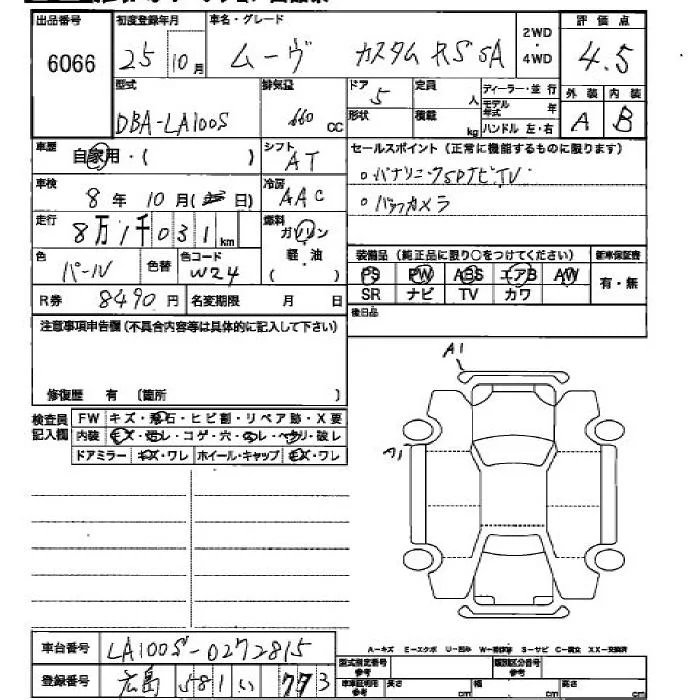 出品番号 初度登録年月 車名・グレード 2WD・4WD 評価点
6066 25 10月 ムーヴ カスタム RS SA 4.5
型式 排気量 ドア 定員 ディーラー・並行 外装 内装
DBA-LA100S 660 CC 5 人 モデル年式 年 A B
形状 積載 kg ハンドル 左・右
車歴 自家用・( ) シフト AT セールスポイント(正常に機能するものに限ります)
車検 8年10月( 日) 冷房 AAC 。パナソニックSDナビTV
走行 8万1千031km 燃料 ガソリン・軽・油 ( ) 。バックカメラ
色 パール 色替 色コード W24
装備品(純正品に限り○をつけてください) 新車保証書
PS PW ABS エアB AW 有・無
SR ナビ TV カワ
R券 8490円 名変期限 月 日 後日品
注意事項申告欄(不具合内容等は具体的に記入して下さい)
修復歴 有 〔箇所 〕
A1
A1
検査員記入欄 FW キズ・飛石・ヒビ割・リペア跡・X要
内装 キズ・切レ・コゲ・穴・ヌレ・ヘタリ・破レ
ドアミラー キズ・ワレ ホイール・キャップ キズ・ワレ
車台番号 LA100S-0272815
A-キズ E-エクボ U-凹み S-サビ XX-交換済
登録番号 広島 581 い 773
型式指定番号 参考 類別区分番号 参考
車車証明用 参考 長さ cm 幅 cm 高さ cm